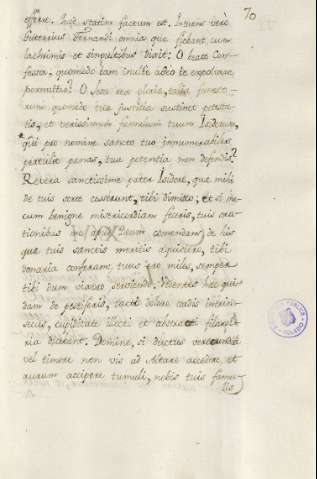 70
efferre. Quod statim factum est. Insians vero
Gutterrius Fernandi omnia que fiebant, cum
lachrimis et singultibus dixit: O beate Con-
fessor, quomodo tam inulte adeo te expoliare
permittis? O Iesu rex glorie, talia furto-
rum quomodo tua justitia sustinet
et verissimum famulum tuum Isidorum,
qui pro nomine sancto tuo innumerabiles
pertulit penas, tua potentia non defendis?
Revera sanctissime pater Isidore, que mihi
de tuis sorte ceserunt, tibi dimitto; et si me-
cum benigne misericordiam feceris, tuis ora-
tionibus me apud Deum comendans, de his
que tuis sanctis meritis aquisiero, tibi
donaria conferam, tuus ero miles, semper
tibi dum vixero serviendo. Videntes hec qui-
dam de pestiferis, tacti dolore cordis intrin-
secus, cupiditate illecti et
ria dicerent. Domine, si
vel timore non vis ad Altare accedere, et
aurum accipere tumuli, nobis tuis famu-
lis